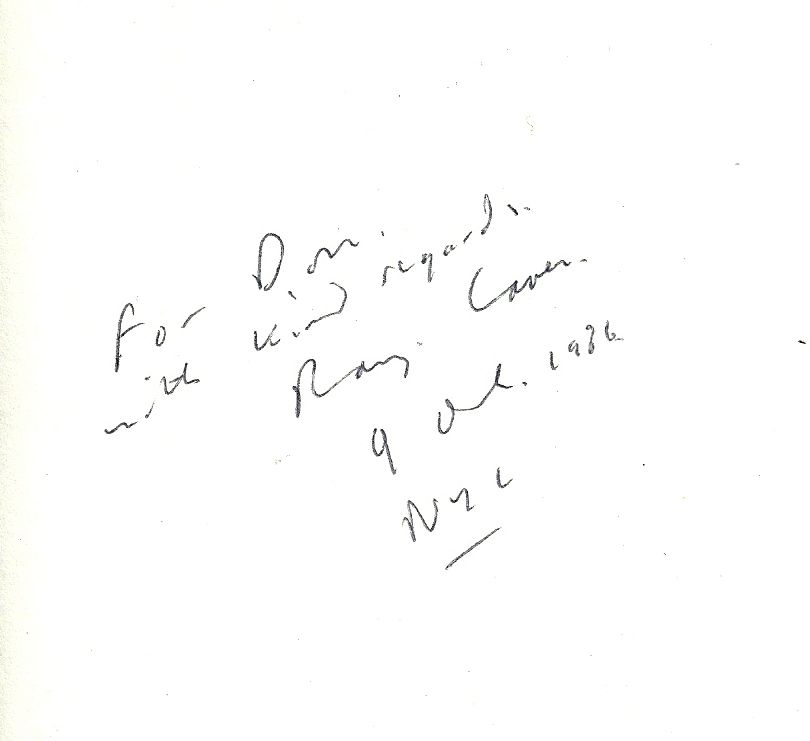 For Don.
with kind regards.
Ray Carver.
9 Oct. 1986
NYC